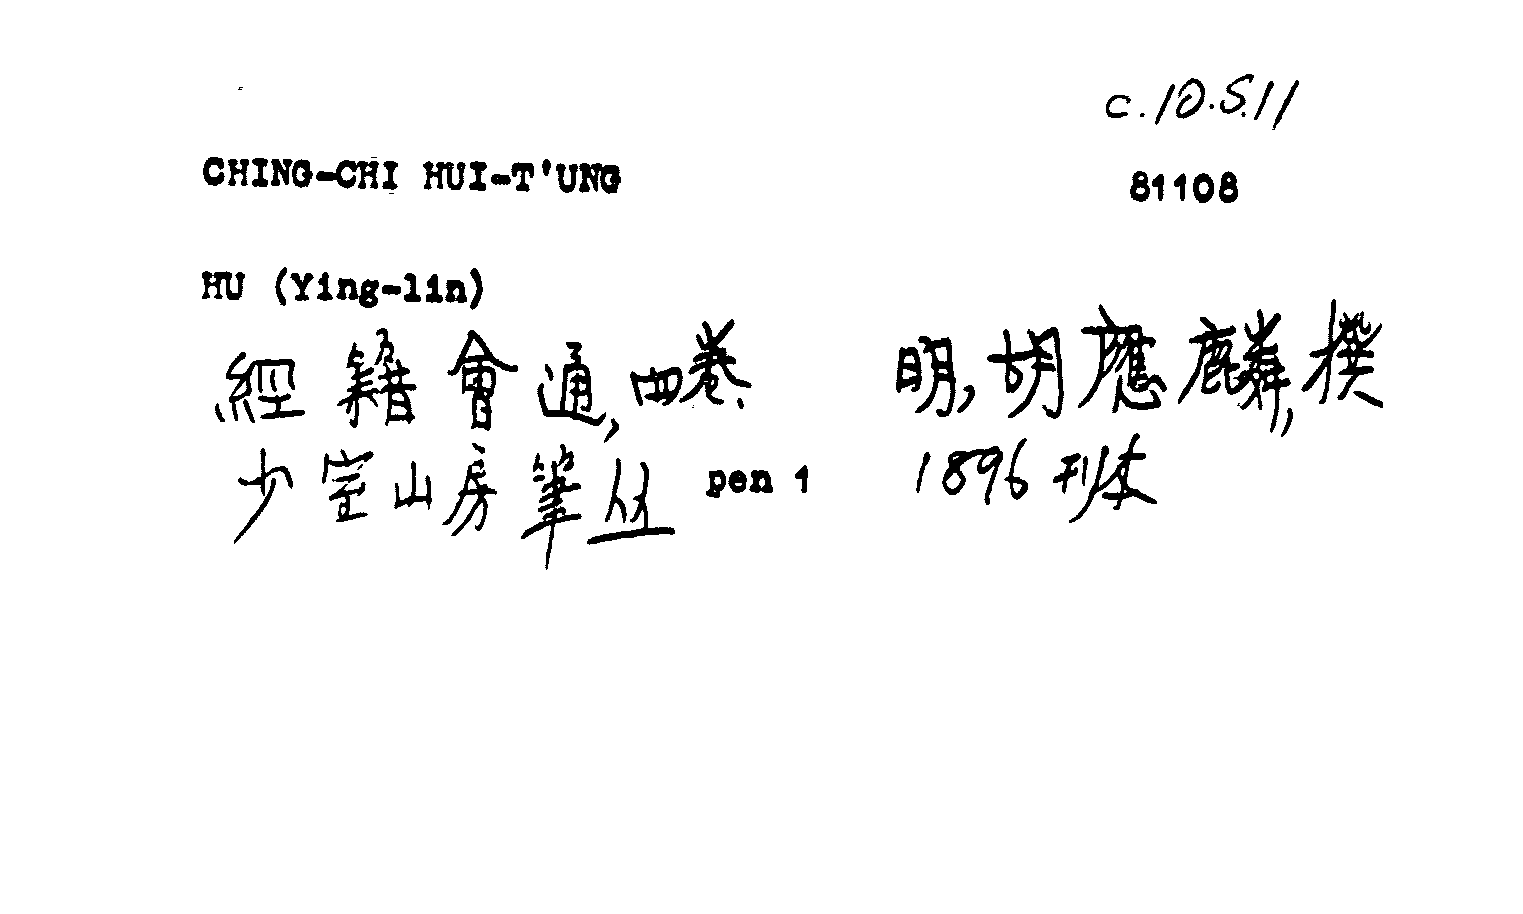 c.10.S.11
CHING-CHI HUI-T'UNG 81108
HU (Ying-lin)
經籍會通,四巻、 明,胡應麟,撰
少室山房筆丛 pen 1 1896 刊本